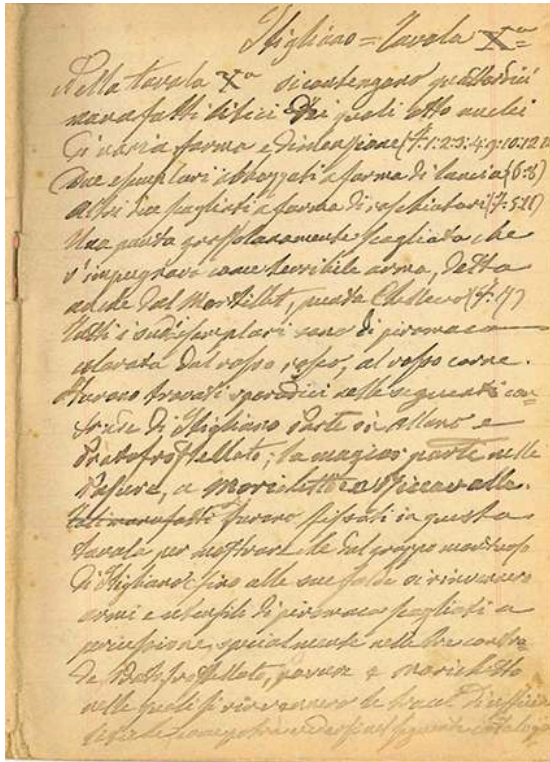 Stigliano = Tavola Xª=
Nella tavola Xª si contengono quattordici
manufatti litici Dei quali otto nuclei
di varia forma e dimensione (f: 1:2:3:4:9:10:12
Due esemplari abbozzati a forma di lancia (6:8)
altri due scagliati a forma di raschiatori (f: 5:11)
Una punta grossolanamente scagliata che
s'impugnava come terribile arma, detta
anche dal Mortillet, punta Chelleen (f: 7)
Tutti i sud. esemplari sono di piromaca
colorata dal rosso roseo, al rosso carne.
Furono trovati sporadici nelle seguenti con=
trade di Stigliano Parte in
Pratofrostellato; la maggior parte nelle
a Morichetto e a
tali manufatti furono fissati in questa
tavola per mostrare che dal gruppo montuoso
di Stigliano sino alle sue falde si rinvennero
armi e utensili di piromaca scagliati a
percussione, specialmente nelle tre contra=
de Pratofrostellato, e Morichetto
nelle quali si rinvennero le tracce d'
come potrà vedersi nel seguente catalogo